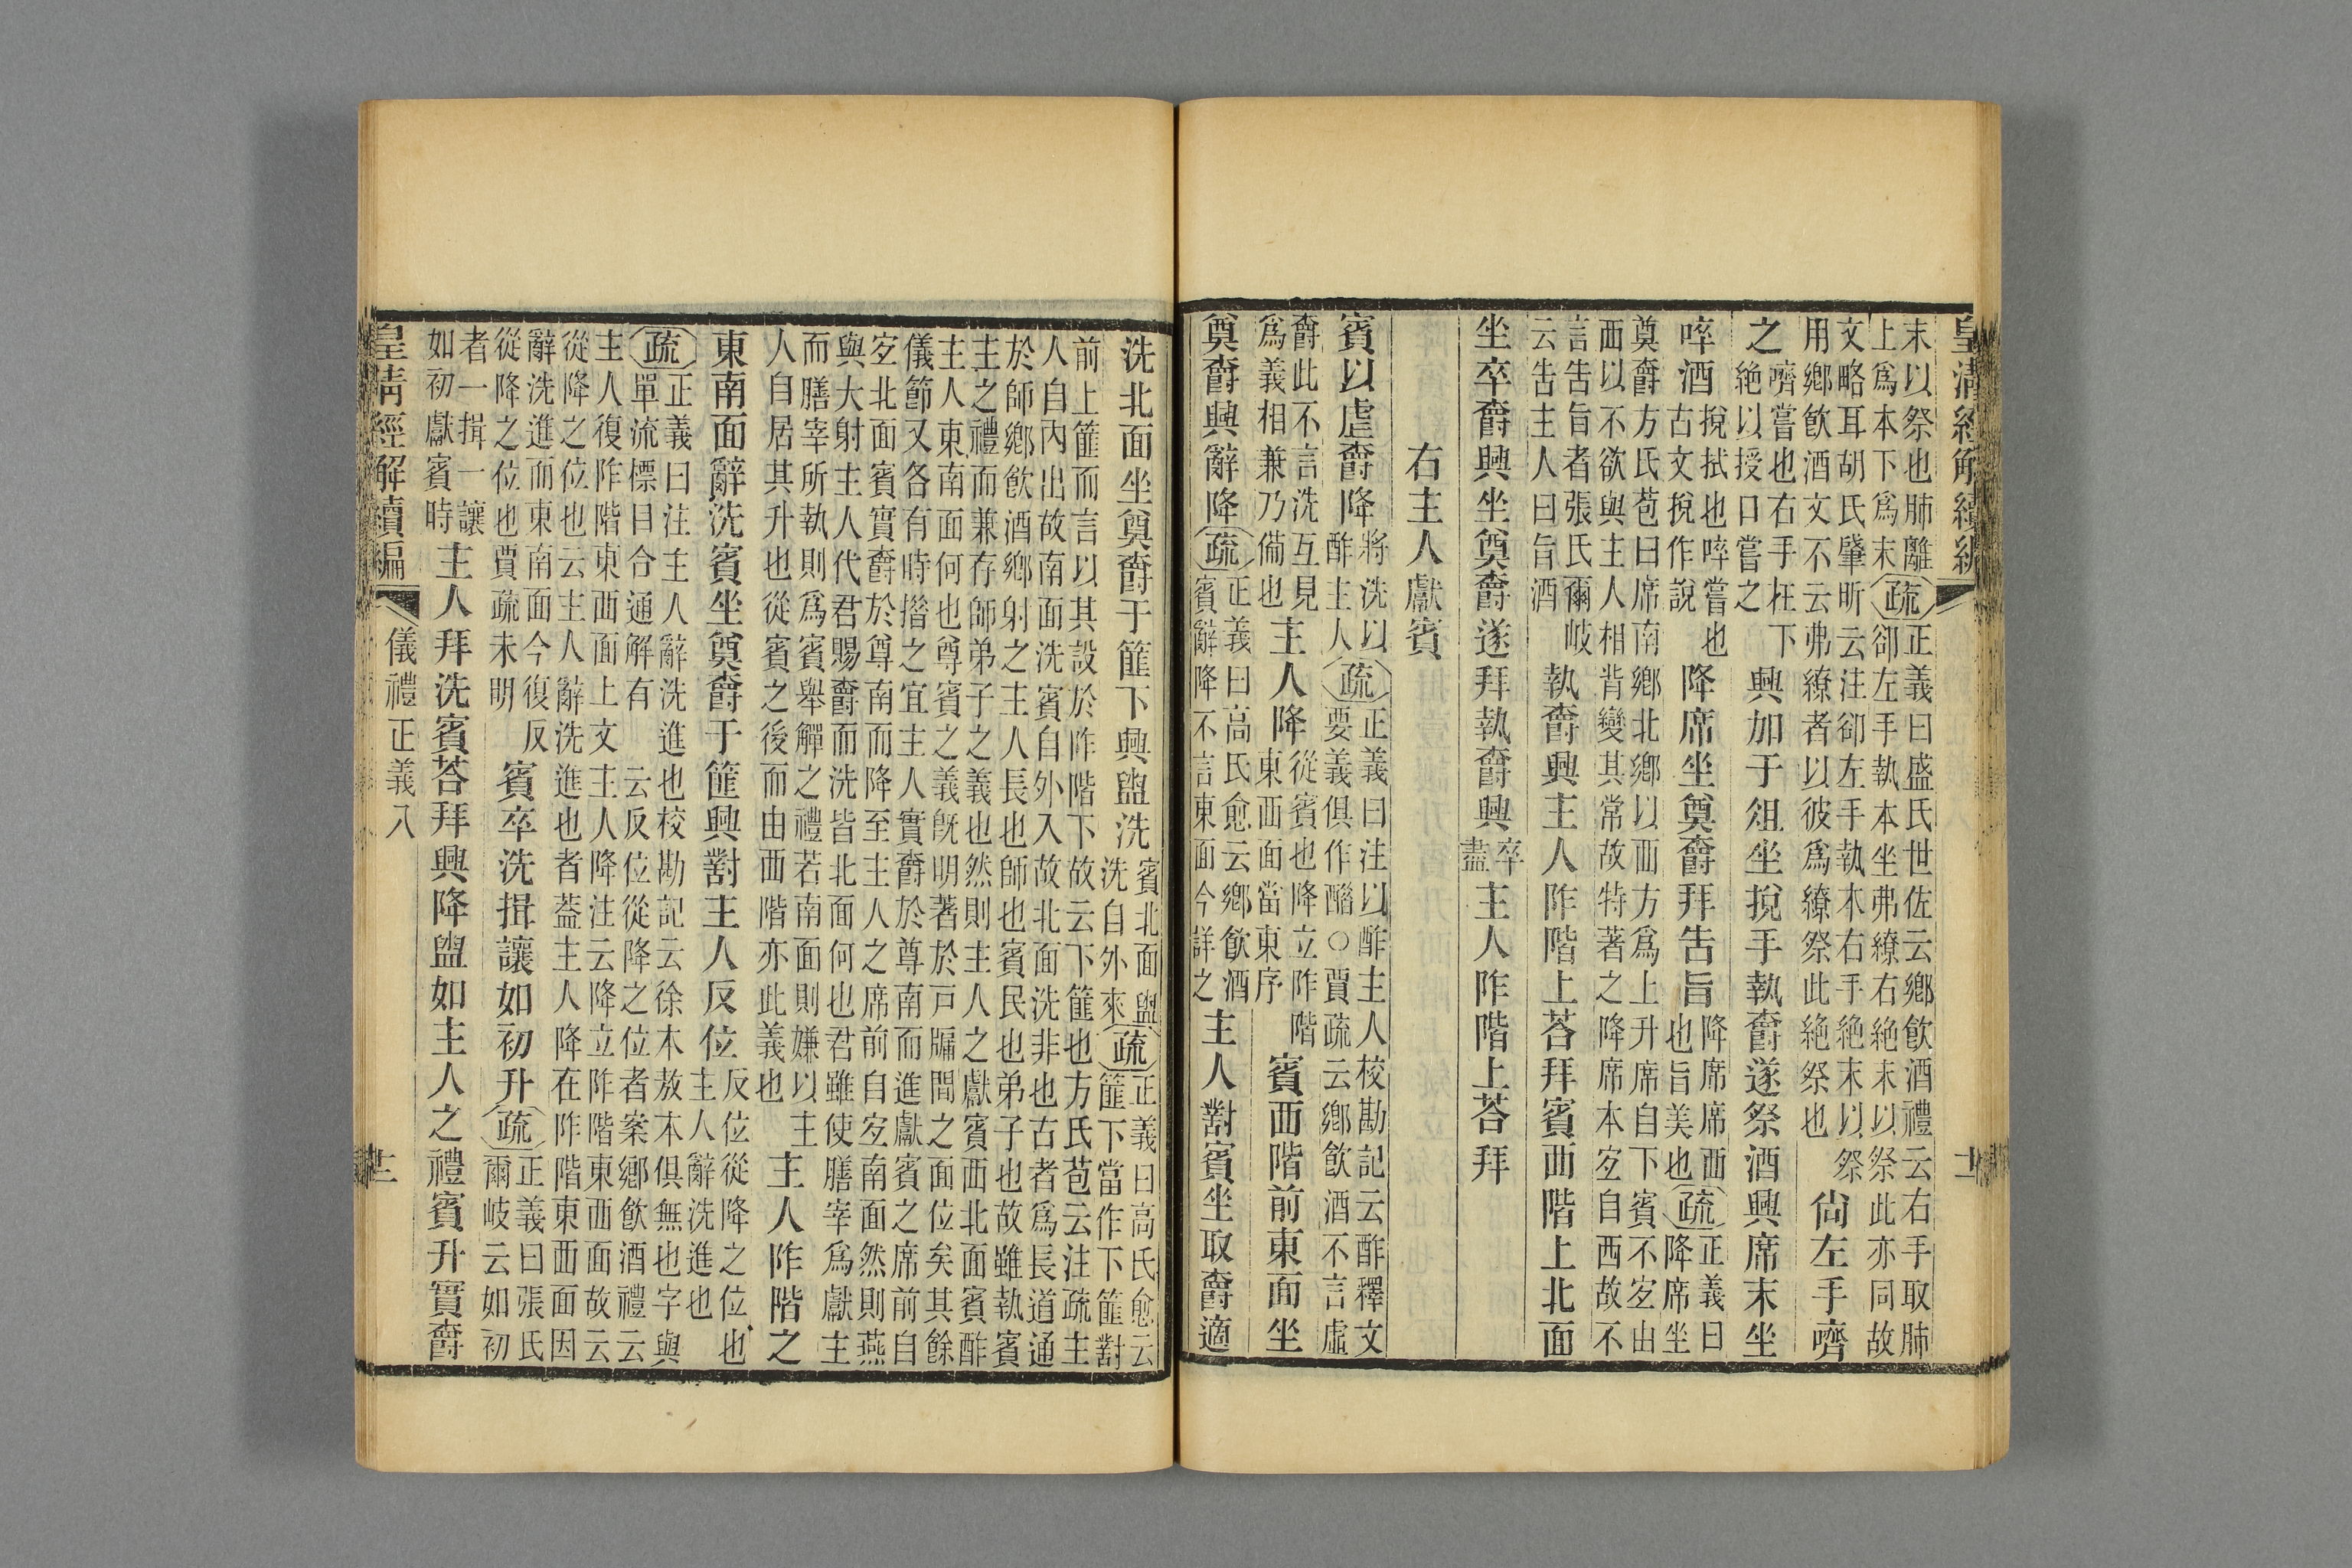 皇清經解續編
末以祭也肺離
上爲本下爲末
疏
正義曰盛氏世佐云鄉飲酒禮云右手取肺
卻左手執本坐弗繚右絕末以祭此亦同故
文略耳胡氏肇昕云注卻左手執本右手絕末以祭
用鄉飲酒文不云弗繚者以彼爲繚祭此絕祭也
尙左手嚌
之
嚌嘗也右手在下
絕以授口嘗之
興加于俎坐挩手執爵遂祭酒興席末坐
啐酒
挩拭也啐嘗也
古文挩作說
降席坐奠爵拜告旨
降席席西
也旨美也
疏
正義曰
降席坐
奠爵方氏苞曰席南鄉北鄉以西方爲上升席自下賓不宜出
西以不欲與主人相背變其常故特著之降席本宜自西故不
言告旨者張氏爾岐
云告主人曰旨酒
執爵興主人阼階上荅拜賓西階上北面
坐卒爵興坐奠爵遂拜執爵興
卒
盡
主人阼階上荅拜
右主人獻賓
賓以虛爵降
將洗以
酢主人
疏
正義曰注以酢主人校勘記云酢釋文
要義俱作醋○賈疏云鄉飲酒不言虛
爵此不言洗互見
爲義相兼乃備也
主人降
從賓也降立阼階
東西面當東序
賓西階前東面坐
奠爵興辭降
疏
正義曰高氏愈云鄉飲酒
賓辭降不言東面今詳之
主人對賓坐取爵適
洗北面坐奠爵于篚下興盥洗
賓北面盥
洗自外來
疏
正義曰高氏愈云
篚下當作下篚對
前上篚而言以其設於阼階下故云下篚也方氏苞云注疏主
人自內出故南面洗賓自外入故北面洗非也古者爲長道通
於師鄉飲酒鄉射之主人長也師也賓民也弟子也故雖執賓
主之禮而兼存師弟子之義也然則主人之獻賓西北面賓酢
主人東南面何也尊賓之義旣明著於戶牖間之面位矣其餘
儀節又各有時措之宜主人實爵於尊南而進獻賓之席前自
宜北面賓實爵於尊南而降至主人之席前自宜南面然則燕
與大射主人代君賜爵而洗皆北面何也君雖使膳宰爲獻主
而膳宰所執則爲賓舉觶之禮若南面則嫌以主
人自居其升也從賓之後而由西階亦此義也
主人阼階之
東南面辭洗賓坐奠爵于篚興對主人反位
反位從降之位也
主人辭洗進也
疏
正義曰注主人辭洗進也校勘記云徐木敖本俱無也字與
單流標目合通解有 云反位從降之位者案鄉飲酒禮云
主人復阼階東西面上文主人降注云降立阼階東西面故云
從降之位也云主人辭洗進也者葢主人降在阼階東西面因
辭洗進而東南面今復反
從降之位也賈疏未明
賓卒洗揖讓如初升
疏
正義曰張氏
爾岐云如初
者一揖一讓
如初獻賓時
主人拜洗賓荅拜興降盥如主人之禮賓升實爵
皇清經解續編
儀禮正義八